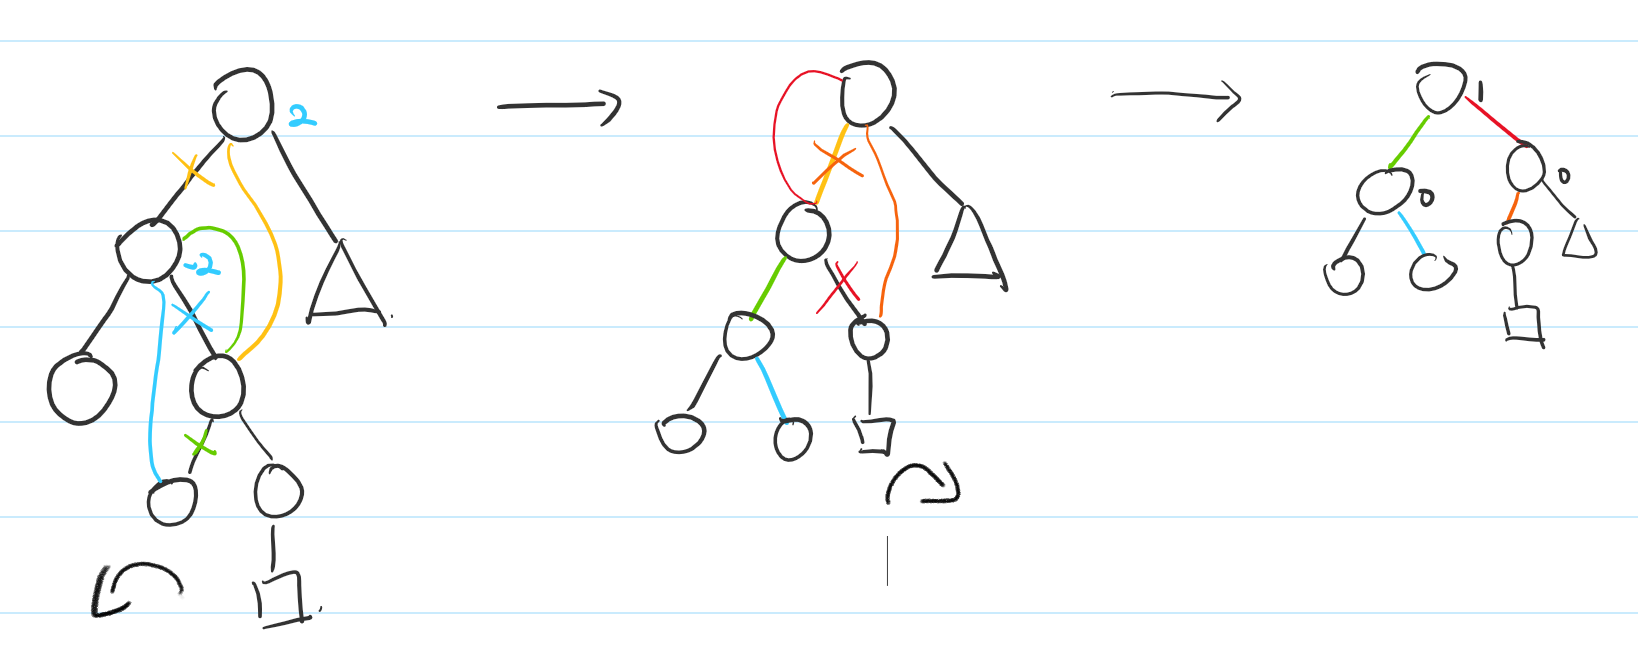 2
-2
1
0
0